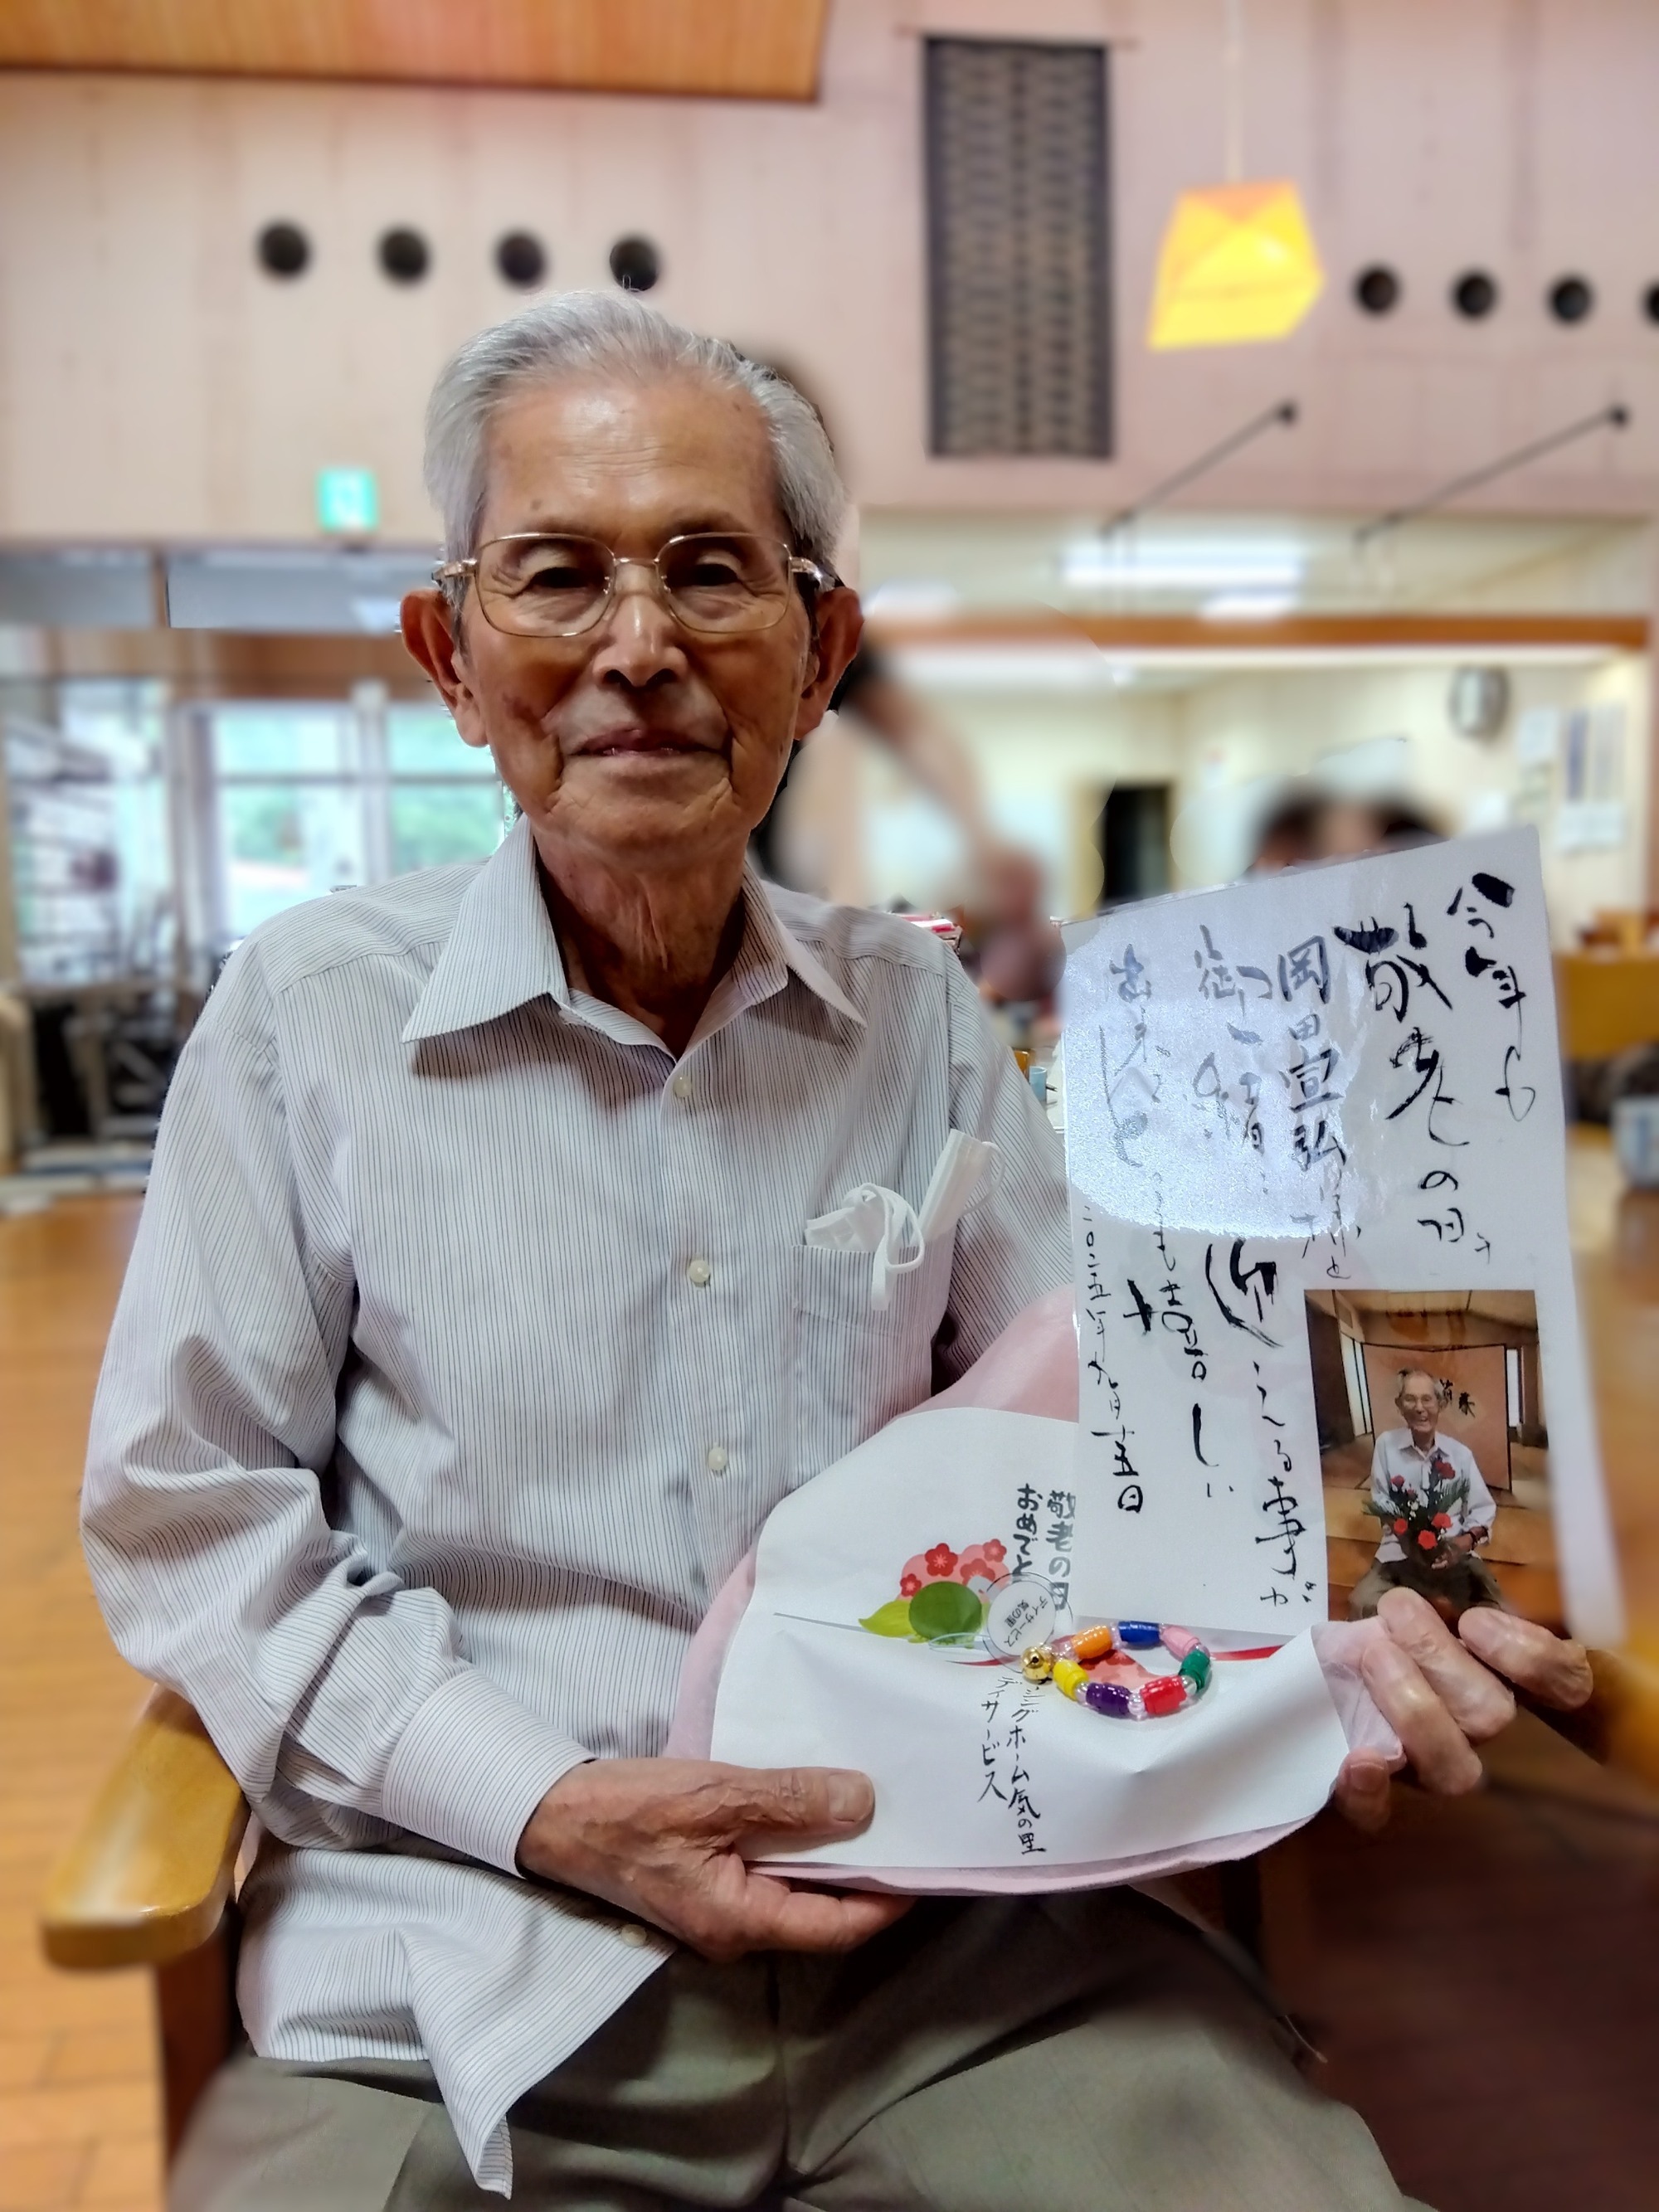 今年も
敬老の日を
岡田宣弘様と
御一緒に迎える事が
出来とても嬉しい
二〇二五年九月十五日
敬老の日
おめでと
デイサービス
気の里
ジングホーム気の里
デイサービス